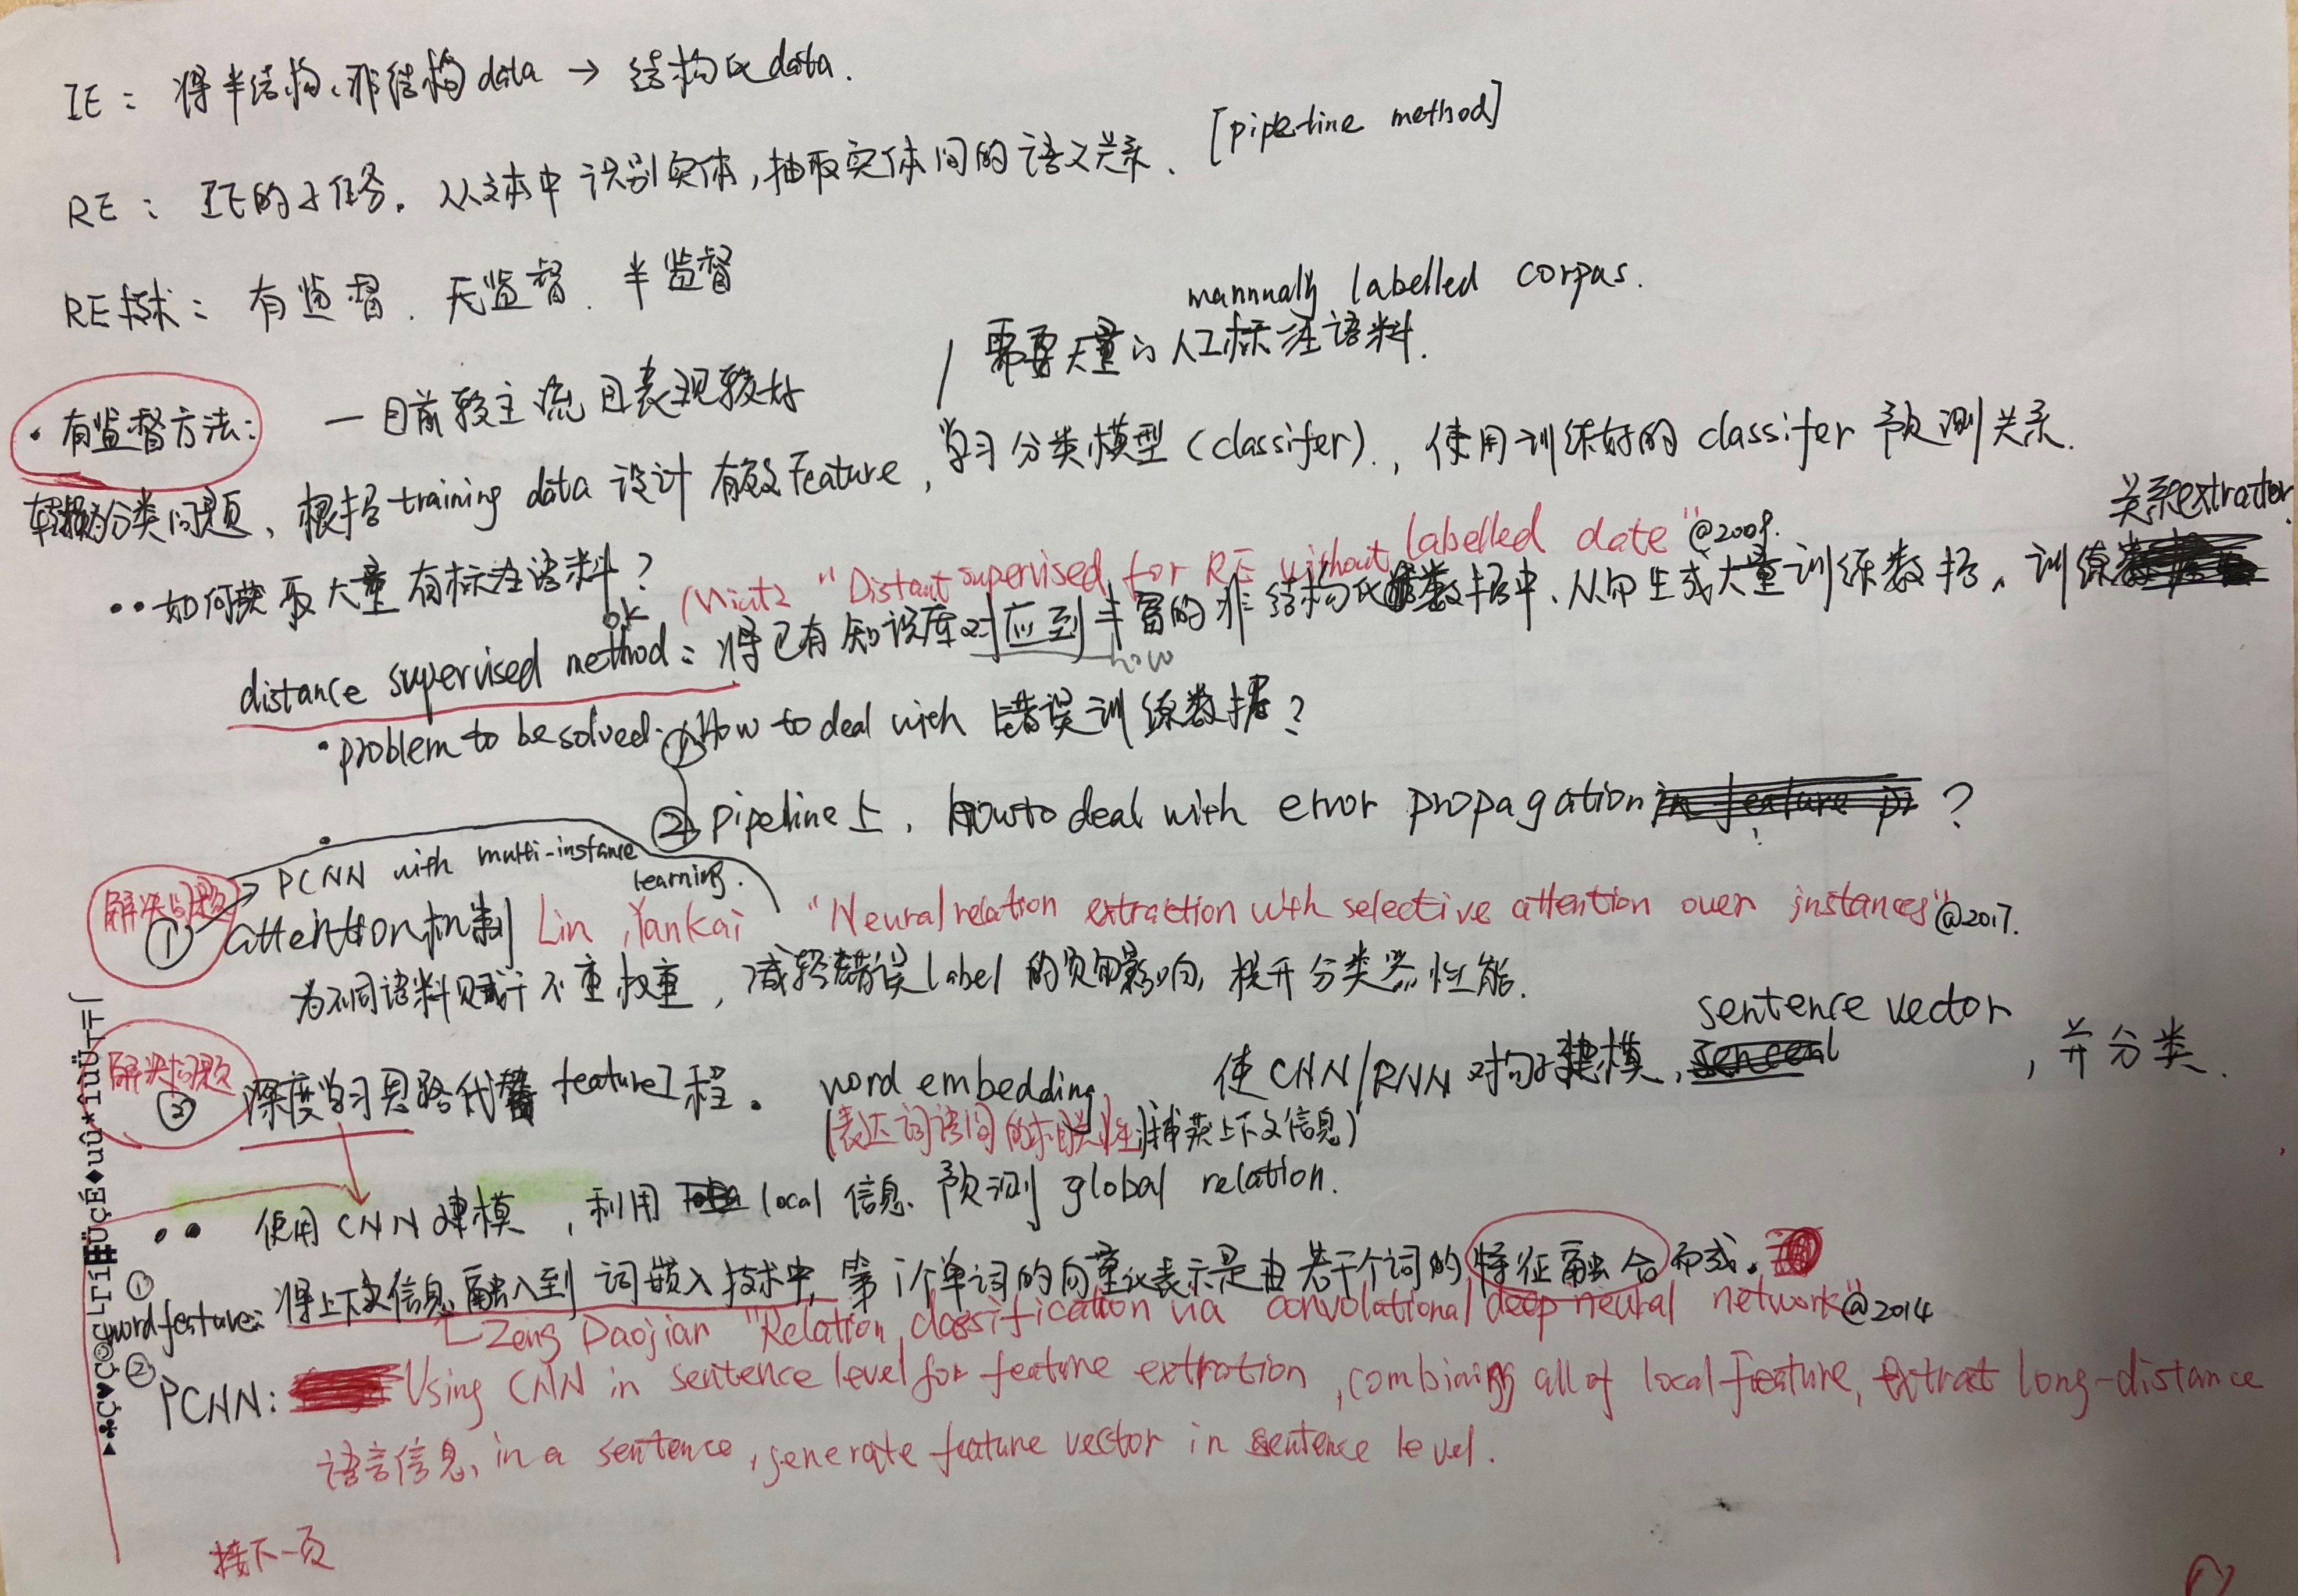 IE： 将半结构、非结构 data → 结构化 data.
RE： IE的子任务. 从文本中识别实体,抽取实体间的语义关系. [pipeline method]
RE技术： 有监督. 无监督. 半监督
mannually labelled corpas.
需要大量的人工标注语料.
• 有监督方法: — 目前较主流且表现较好
转换为分类问题、根据 training data 设计有效 feature, 学习分类模型 (classifer)., 使用训练好的 classifer 预测关系.
关系extrator.
•• 如何获取大量有标注语料?
(Mintz "Distant supervised for RE without labelled date" @2009.
distance supervised method： 将已有知识库对应到丰富的非结构化数据中、从而生成大量训练数据, 训练
how
• problem to be solved. ① How to deal with 错误训练数据?
② pipeline上, how to deal with error propagation ?
解决问题 ①
PCNN with multi-instance learning.
attention机制 Lin, Yankai "Neural relation extraction with selective attention over instances" @2017.
为不同语料赋予不重权重, 减轻错误label的负面影响, 提升分类器性能.
解决问题 ②
深度学习思路代替 feature工程. word embedding 使CNN/RNN 对句子建模, sentence vector, 并分类.
(表达词语间的相关性,捕获上下文信息)
•• 使用CNN建模, 利用 local 信息、预测 global relation.
① word feature: 将上下文信息融入到词嵌入技术中, 第i个单词的向量化表示是由若干个词的特征融合而成.
Zeng Daojian "Relation classification via convolational deep neural network" @2014
② PCNN: Using CNN in sentence level for feature extration, combining all of local feature, extrat long-distance
语言信息, in a sentence, generate feature vector in sentence level.
接下一页